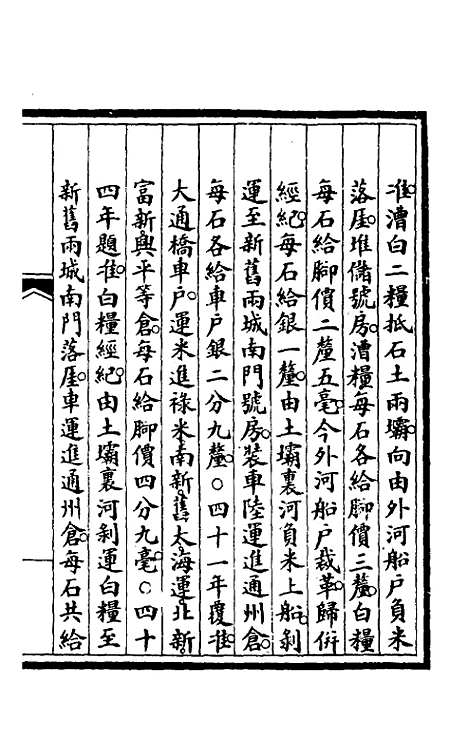 准漕白二糧抵石土兩壩向由外河船戶負米
落厓堆儲號房漕糧每石各給腳價三釐白糧
每石給腳價二釐五毫今外河船戶裁革歸併
經紀每石給銀一釐由土壩裏河負米上船剝
運至新舊兩城南門號房裝車陸運進通州倉
每石各給車戶銀二分九釐○四十一年覆准
大通橋車戶運米進祿米南新舊太海運北新
富新興平等倉每石給腳價四分九毫○四十
四年題准白糧經紀由土壩裏河剝運白糧至
新舊兩城南門落厓車運進通州倉每石共給